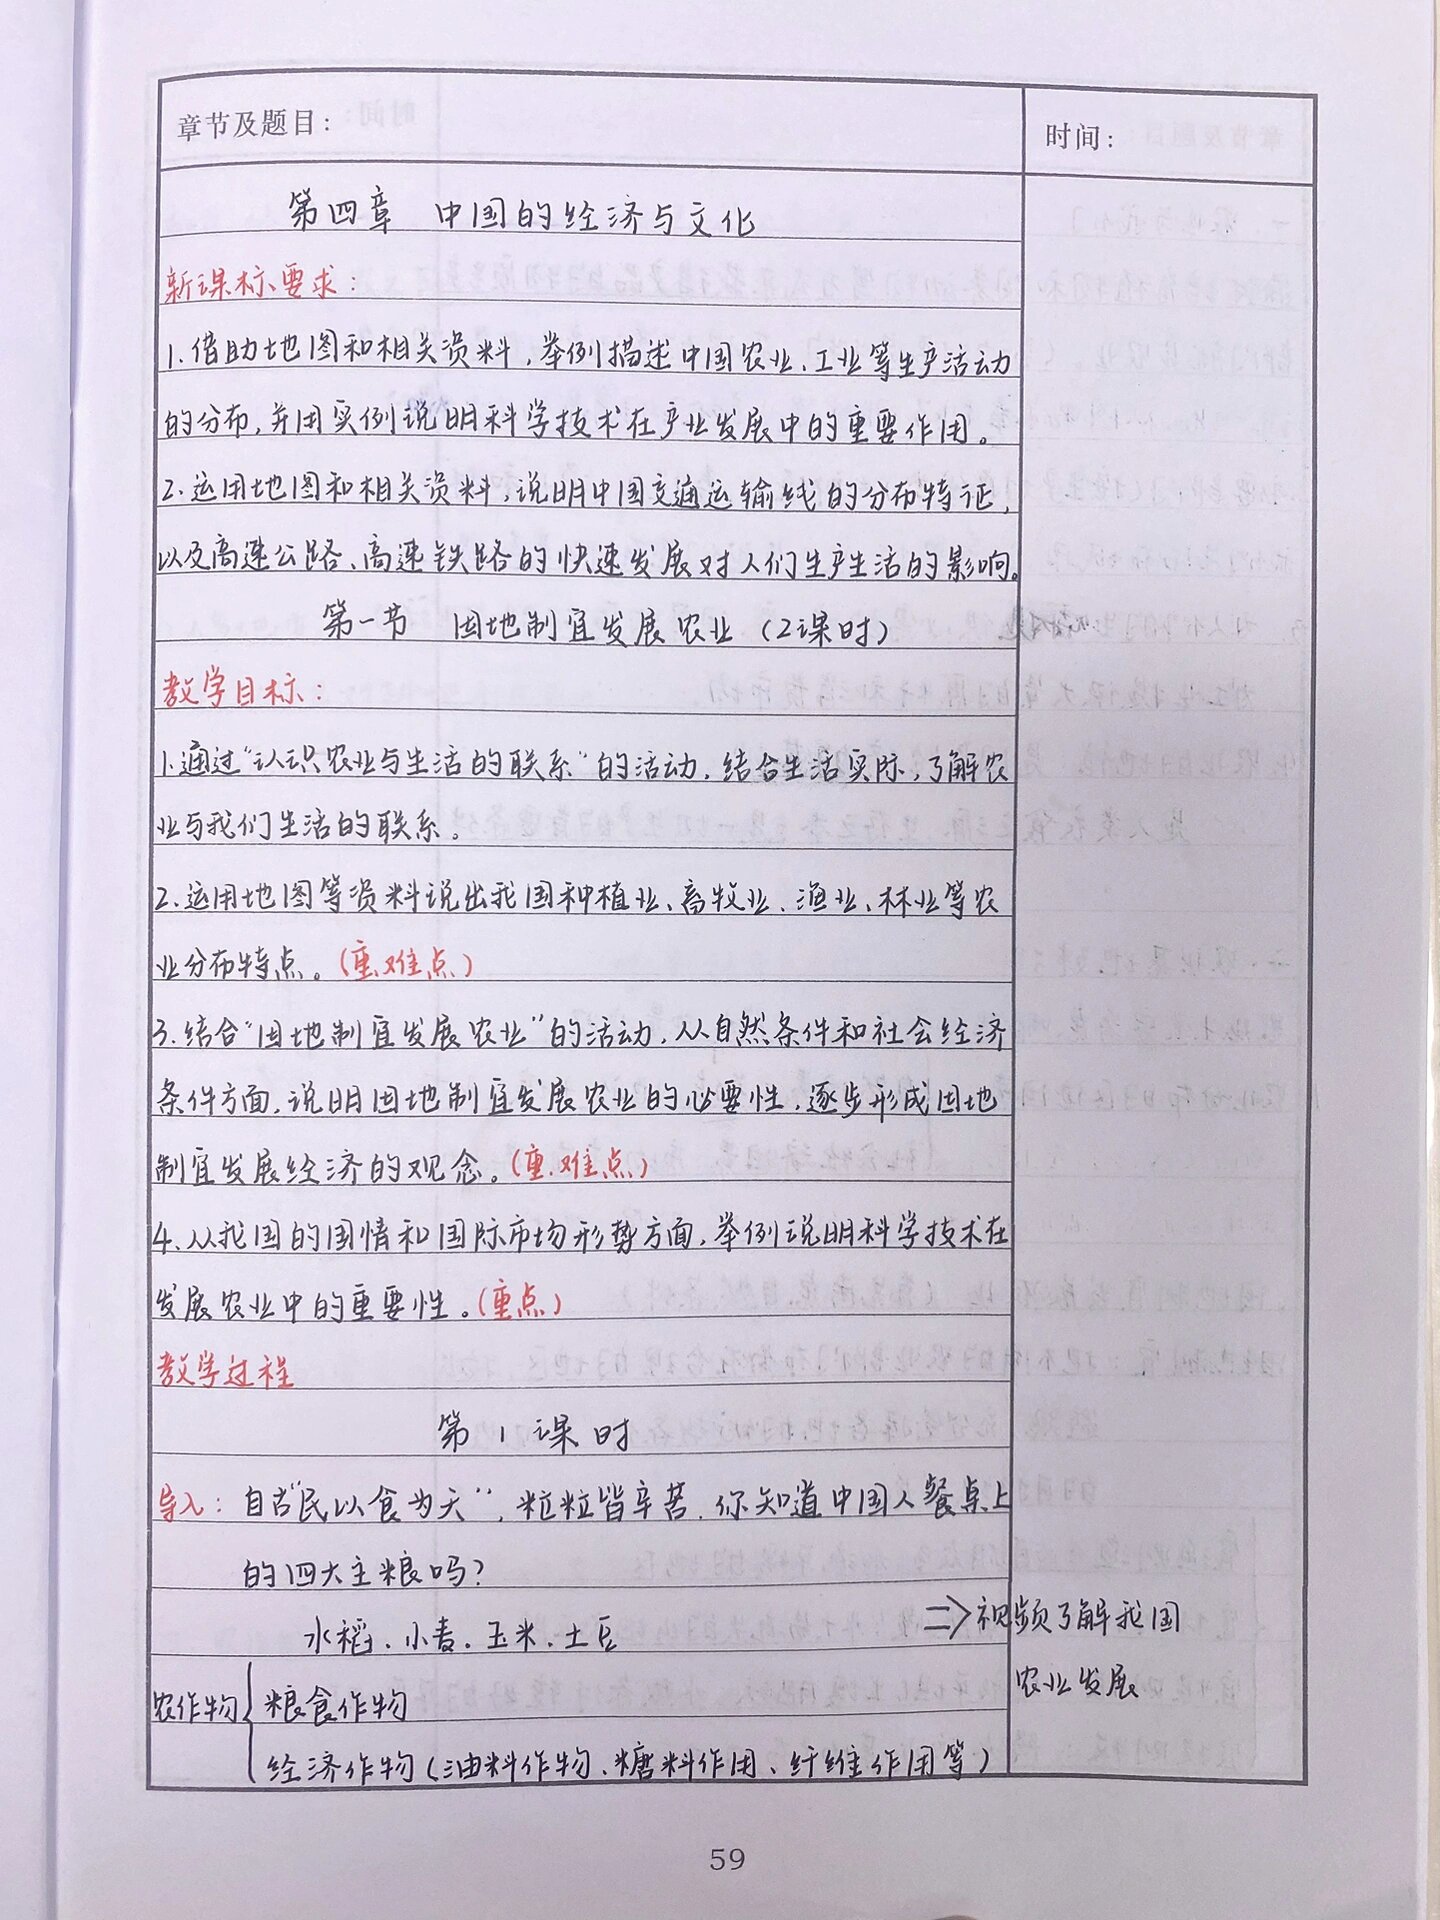 章节及题目：
时间：
第四章 中国的经济与文化
新课标要求：
1.借助地图和相关资料，举例描述中国农业、工业等生产活动
的分布，并用实例说明科学技术在产业发展中的重要作用。
2.运用地图和相关资料，说明中国交通运输线的分布特征，
以及高速公路、高速铁路的快速发展对人们生产生活的影响。
第一节 因地制宜发展农业（2课时）
教学目标：
1.通过“认识农业与生活的联系”的活动，结合生活实际，了解农
业与我们生活的联系。
2.运用地图等资料说出我国种植业、畜牧业、渔业、林业等农
业分布特点。（重、难点）
3.结合“因地制宜发展农业”的活动，从自然条件和社会经济
条件方面，说明因地制宜发展农业的必要性，逐步形成因地
制宜发展经济的观念。（重、难点）
4.从我国的国情和国际市场形势方面，举例说明科学技术在
发展农业中的重要性。（重点）
教学过程
第1课时
导入：自古“民以食为天”，粒粒皆辛苦，你知道中国人餐桌上
的四大主粮吗？
水稻、小麦、玉米、土豆
=>视频了解我国
农业发展
农作物{粮食作物
经济作物（油料作物、糖料作用、纤维作用等）
59